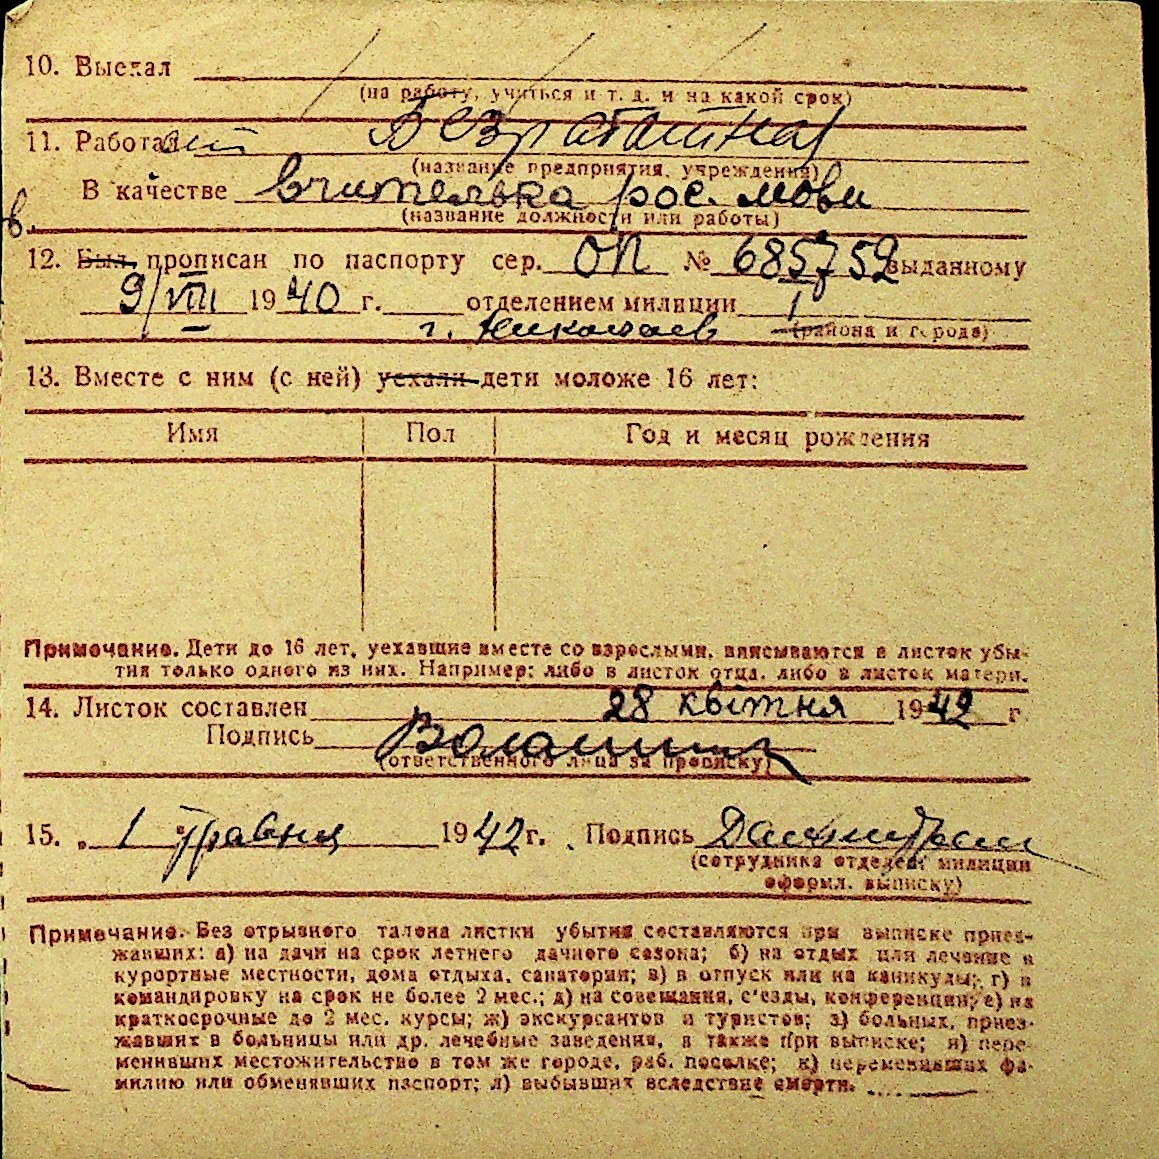 10. Выехал
(на работу, учиться и т. д. и на какой срок)
11. Работает Безработная
(название предприятия, учреждения)
В качестве вчителька рос. мови
(название должности или работы)
в.
12. Был прописан по паспорту сер. ОП № 685752 выданному
9/VIII 1940 г. отделением милиции I
г. Николаев (района и города)
13. Вместе с ним (с ней) уехали дети моложе 16 лет:
Имя Пол Год и месяц рождения
Примечание. Дети до 16 лет, уехавшие вместе со взрослыми, вписываются в листок убы-
тия только одного из них. Например: либо в листок отца, либо в листок матери.
14. Листок составлен 28 квітня 1942 г.
Подпись
(ответственного лица за прописку)
15. „ 1 " травня 1942 г. Подпись
(сотрудника отделен. милиции
оформл. выписку)
Примечание. Без отрывного талона листки убытия составляются при выписке приез-
жавших: а) на дачи на срок летнего дачного сезона; б) на отдых или лечение в
курортные местности, дома отдыха, санатории; в) в отпуск или на каникулы; г) в
командировку на срок не более 2 мес.; д) на совещания, с'езды, конференции; е) на
краткосрочные до 2 мес. курсы; ж) экскурсантов и туристов; з) больных, приез-
жавших в больницы или др. лечебные заведения, а также при выписке; и) пере-
менивших местожительство в том же городе, раб. поселке; к) переменивших фа-
милию или обменявших паспорт; л) выбывших вследствие смерти.